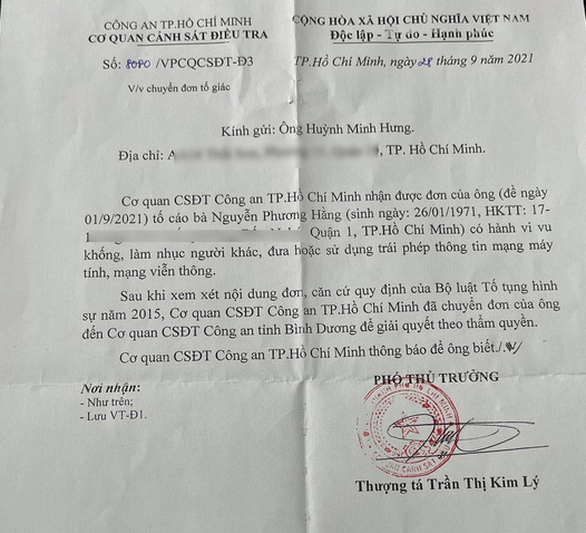 CÔNG AN TP.HỒ CHÍ MINH
CƠ QUAN CẢNH SÁT ĐIỀU TRA
Số: 8080 /VPCQCSĐT-Đ3
V/v chuyển đơn tố giác
CỘNG HÒA XÃ HỘI CHỦ NGHĨA VIỆT NAM
Độc lập - Tự do - Hạnh phúc
TP.Hồ Chí Minh, ngày 28 tháng 9 năm 2021
Kính gửi: Ông Huỳnh Minh Hưng.
Địa chỉ: , TP. Hồ Chí Minh.
Cơ quan CSĐT Công an TP.Hồ Chí Minh nhận được đơn của ông (đề ngày
01/9/2021) tố cáo bà Nguyễn Phương Hằng (sinh ngày: 26/01/1971, HKTT: 17-
Quận 1, TP.Hồ Chí Minh) có hành vi vu
khống, làm nhục người khác, đưa hoặc sử dụng trái phép thông tin mạng máy
tính, mạng viễn thông.
Sau khi xem xét nội dung đơn, căn cứ quy định của Bộ luật Tố tụng hình
sự năm 2015, Cơ quan CSĐT Công an TP.Hồ Chí Minh đã chuyển đơn của ông
đến Cơ quan CSĐT Công an tỉnh Bình Dương để giải quyết theo thẩm quyền.
Cơ quan CSĐT Công an TP.Hồ Chí Minh thông báo để ông biết./.
Nơi nhận:
- Như trên;
- Lưu VT-Đ1.
PHÓ THỦ TRƯỞNG
Thượng tá Trần Thị Kim Lý